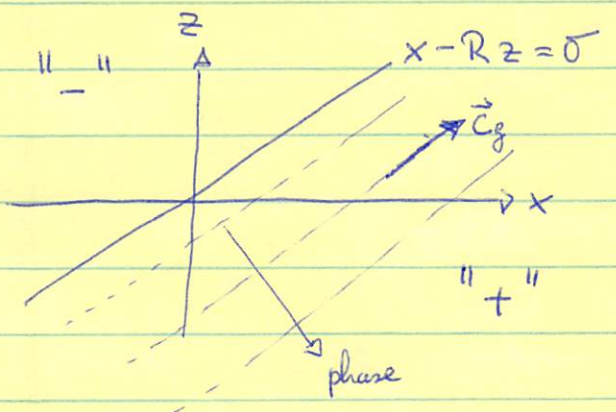 z
"-"
x - R z = σ
C⃗g
x
"+"
phase